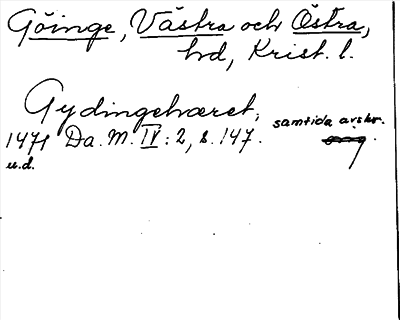 Göinge, Västra och Östra,
hd, Krist. l.
Gydingehæret,
samtida avskr.
1471 Da. M. IV: 2, s. 147.
u.d.